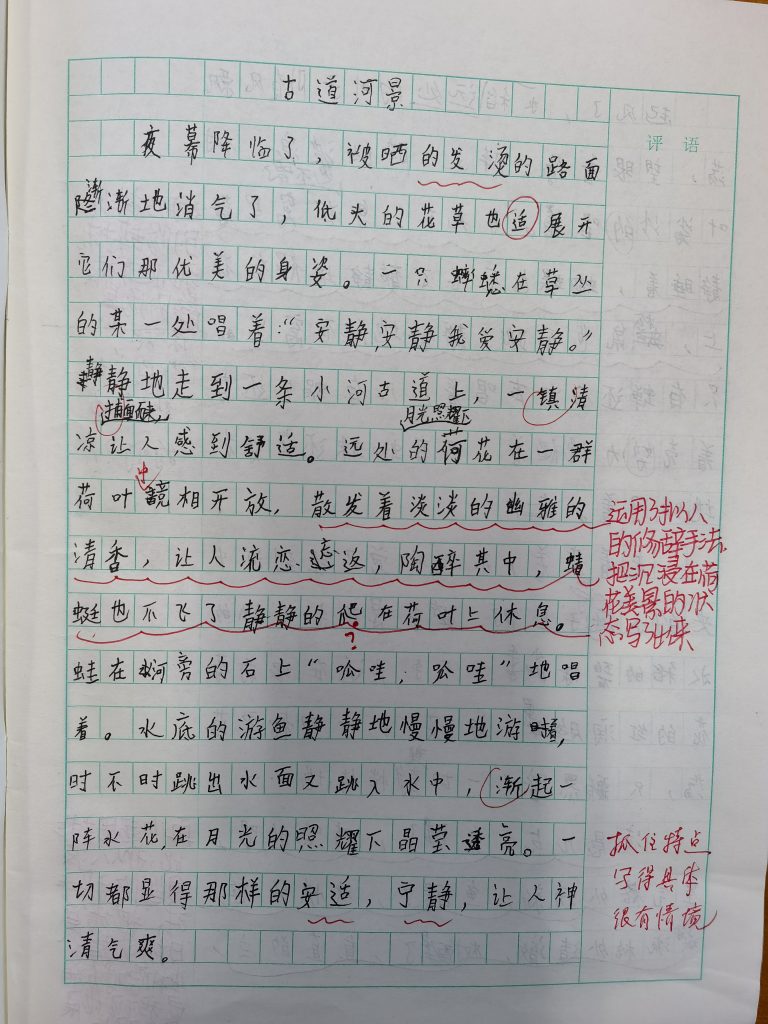 古道河景
评语
夜幕降临了，被晒的发烫的路面
渐渐地消气了，低头的花草也适展开
它们那优美的身姿。一只蟋蟀在草丛
的某一处唱着“安静,安静我爱安静。”
静静地走到一条小河古道上，一镇清
月光照耀下
凉让人感到舒适。远处的荷花在一群
中
荷叶镜相开放，散发着淡淡的幽雅的
清香，让人流恋忘返，陶醉其中，蜻
蜓也不飞了静静的爬在荷叶上休息。
?
运用了拟人
的修辞手法,
把沉浸在荷
花美景的状
态写了出来
蛙在河旁的石上“呱哇，呱哇”地唱
着。水底的游鱼静静地慢慢地游着，
时不时跳出水面又跳入水中，渐起一
阵水花,在月光的照耀下晶莹透亮。一
切都显得那样的安适，宁静，让人神
清气爽。
抓住特点
写得具体
很有情境